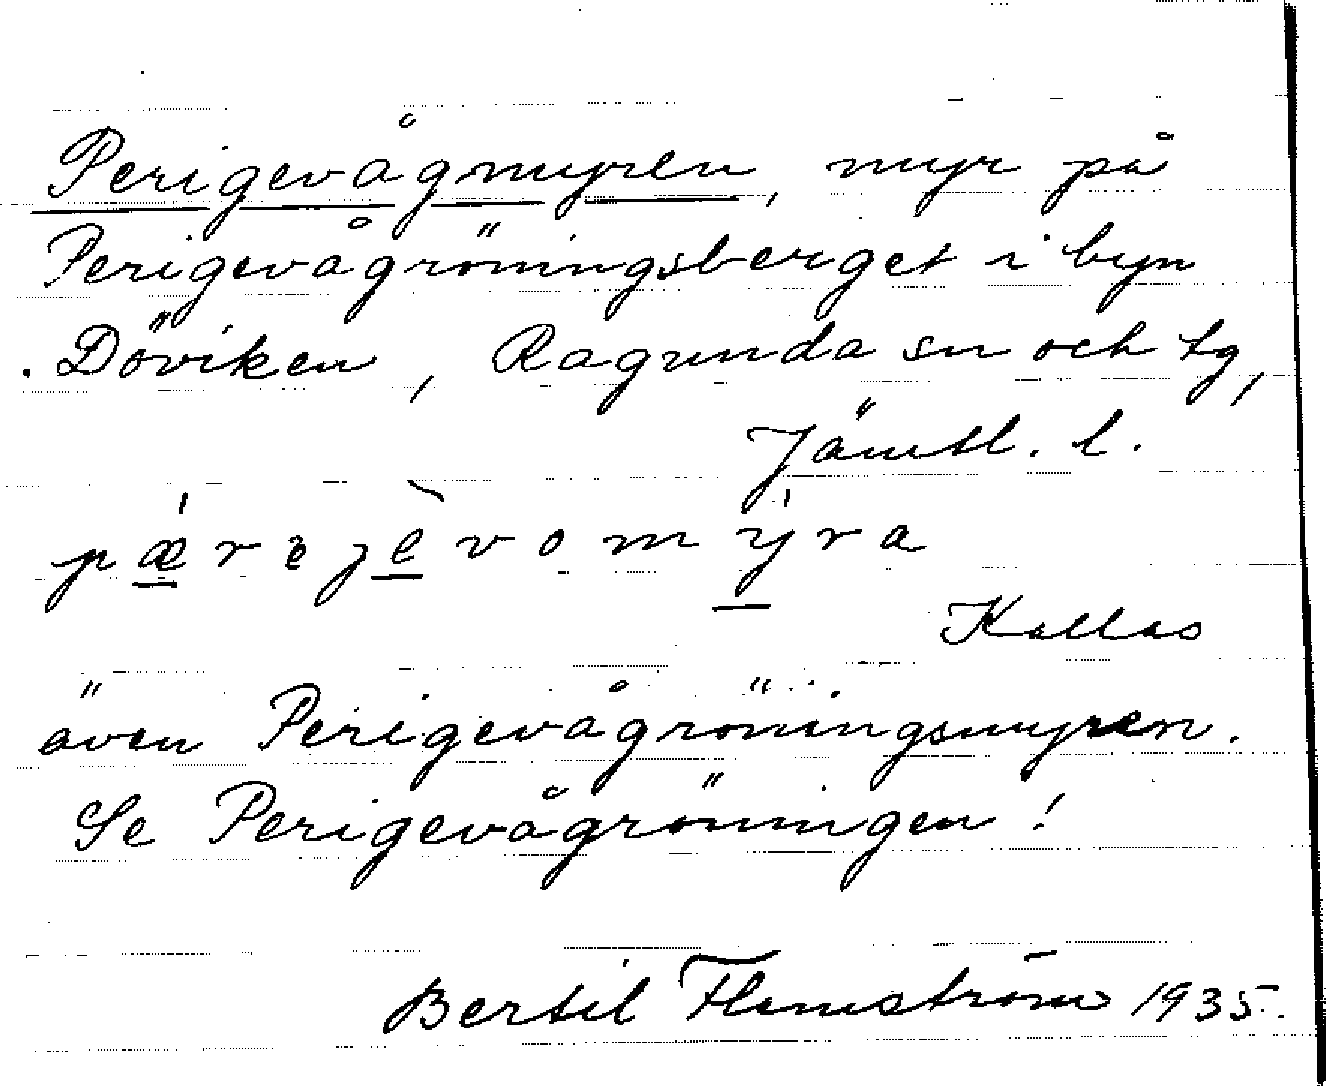 Perigevågmyren, myr på
Perigevågröningsberget i byn
Döviken, Ragunda sn och tg,
Jämtl. l.
pǽrejèvomýra
Kallas
även Perigevågröningsmyren.
Se Perigevågröningen!
Bertil Flemström 1935.